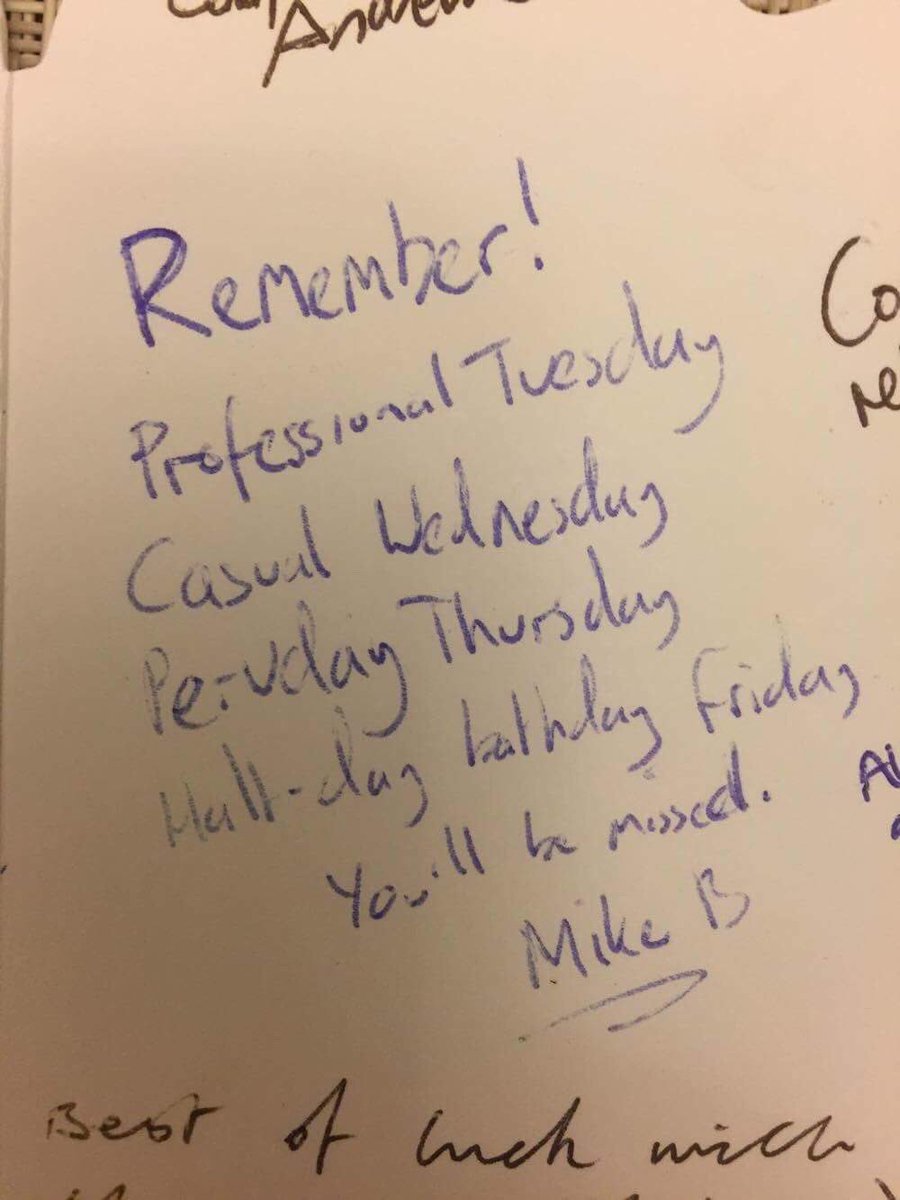 Andrew
Remember!
Professional Tuesday
Casual Wednesday
Peruday Thursday
Half-day bathday Friday
You'll be missed.
Mike B
Best of luck with